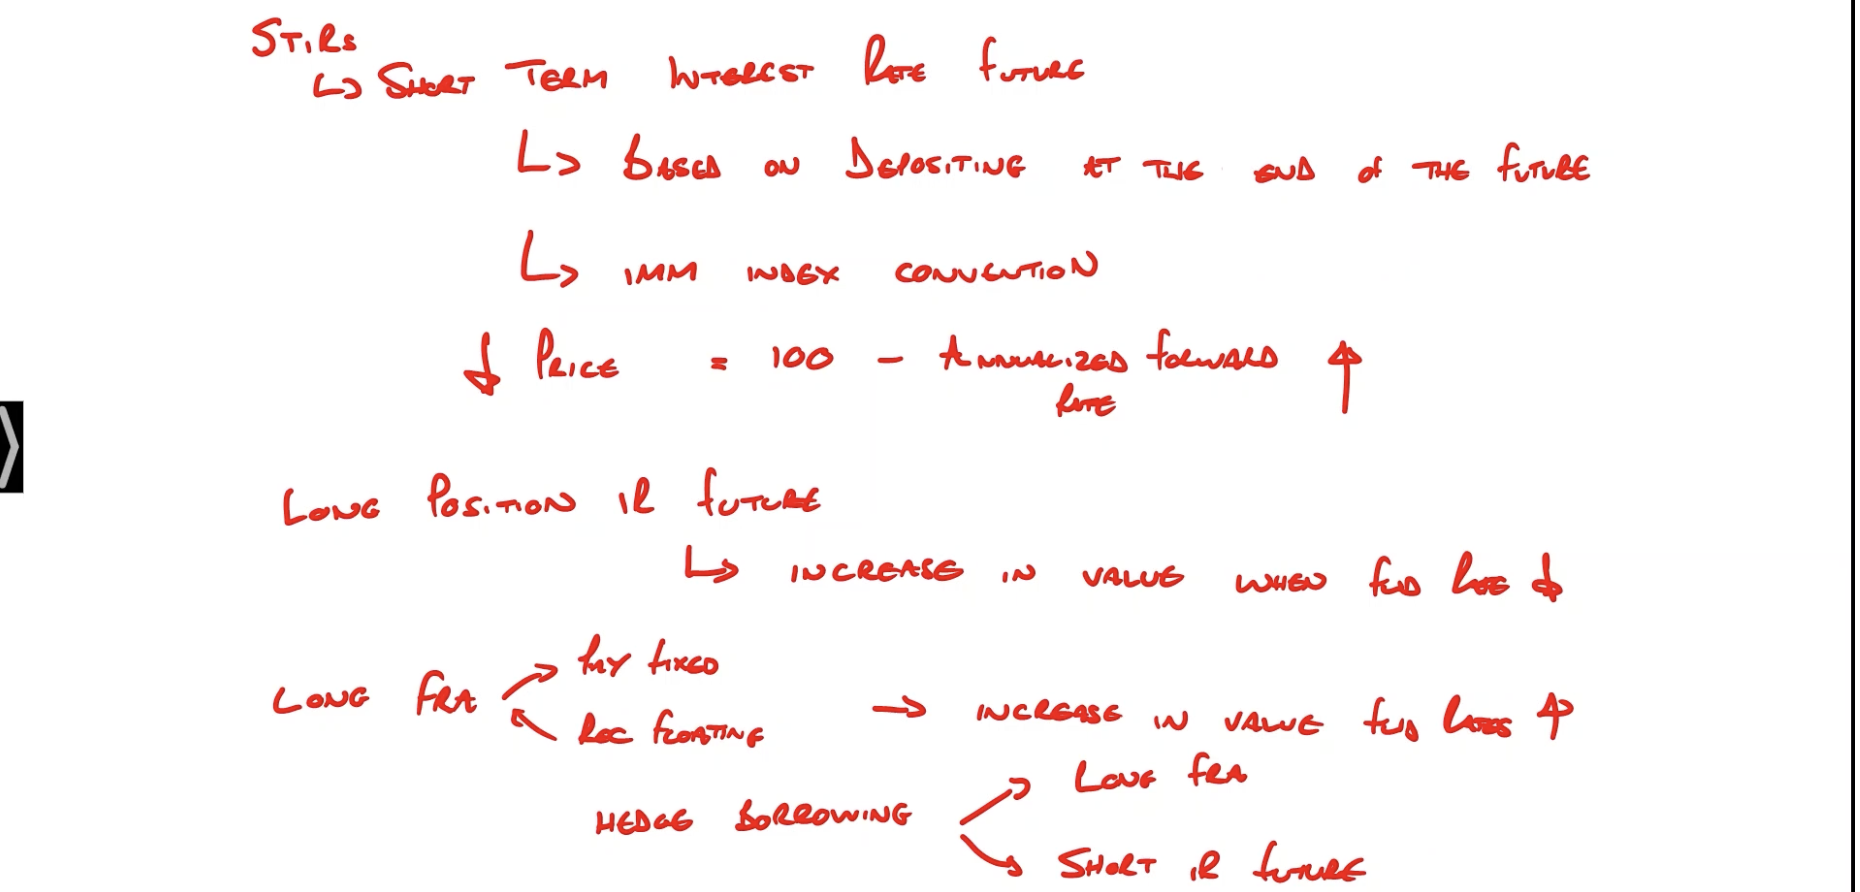 STIRs
↳ SHORT TERM INTEREST RATE FUTURE
↳ BASED ON DEPOSITING AT THE END OF THE FUTURE
↳ IMM INDEX CONVENTION
↓ PRICE = 100 - ANNUALIZED FORWARD ↑
RATE
LONG POSITION IR FUTURE
↳ INCREASE IN VALUE WHEN FWD RATE ↓
PAY FIXED
LONG FRA → INCREASE IN VALUE FWD RATES ↑
REC FLOATING
LONG FRA
HEDGE BORROWING
SHORT IR FUTURE